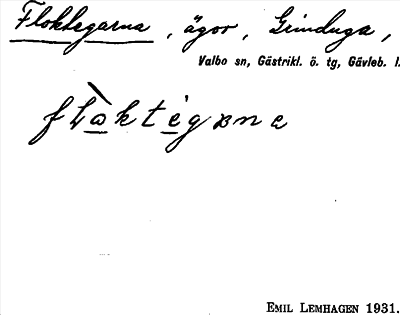 Floktegarna, ägor, Grinduga,
Valbo sn, Gästrikl. ö. tg, Gävleb. l.
EMIL LEMHAGEN 1931.